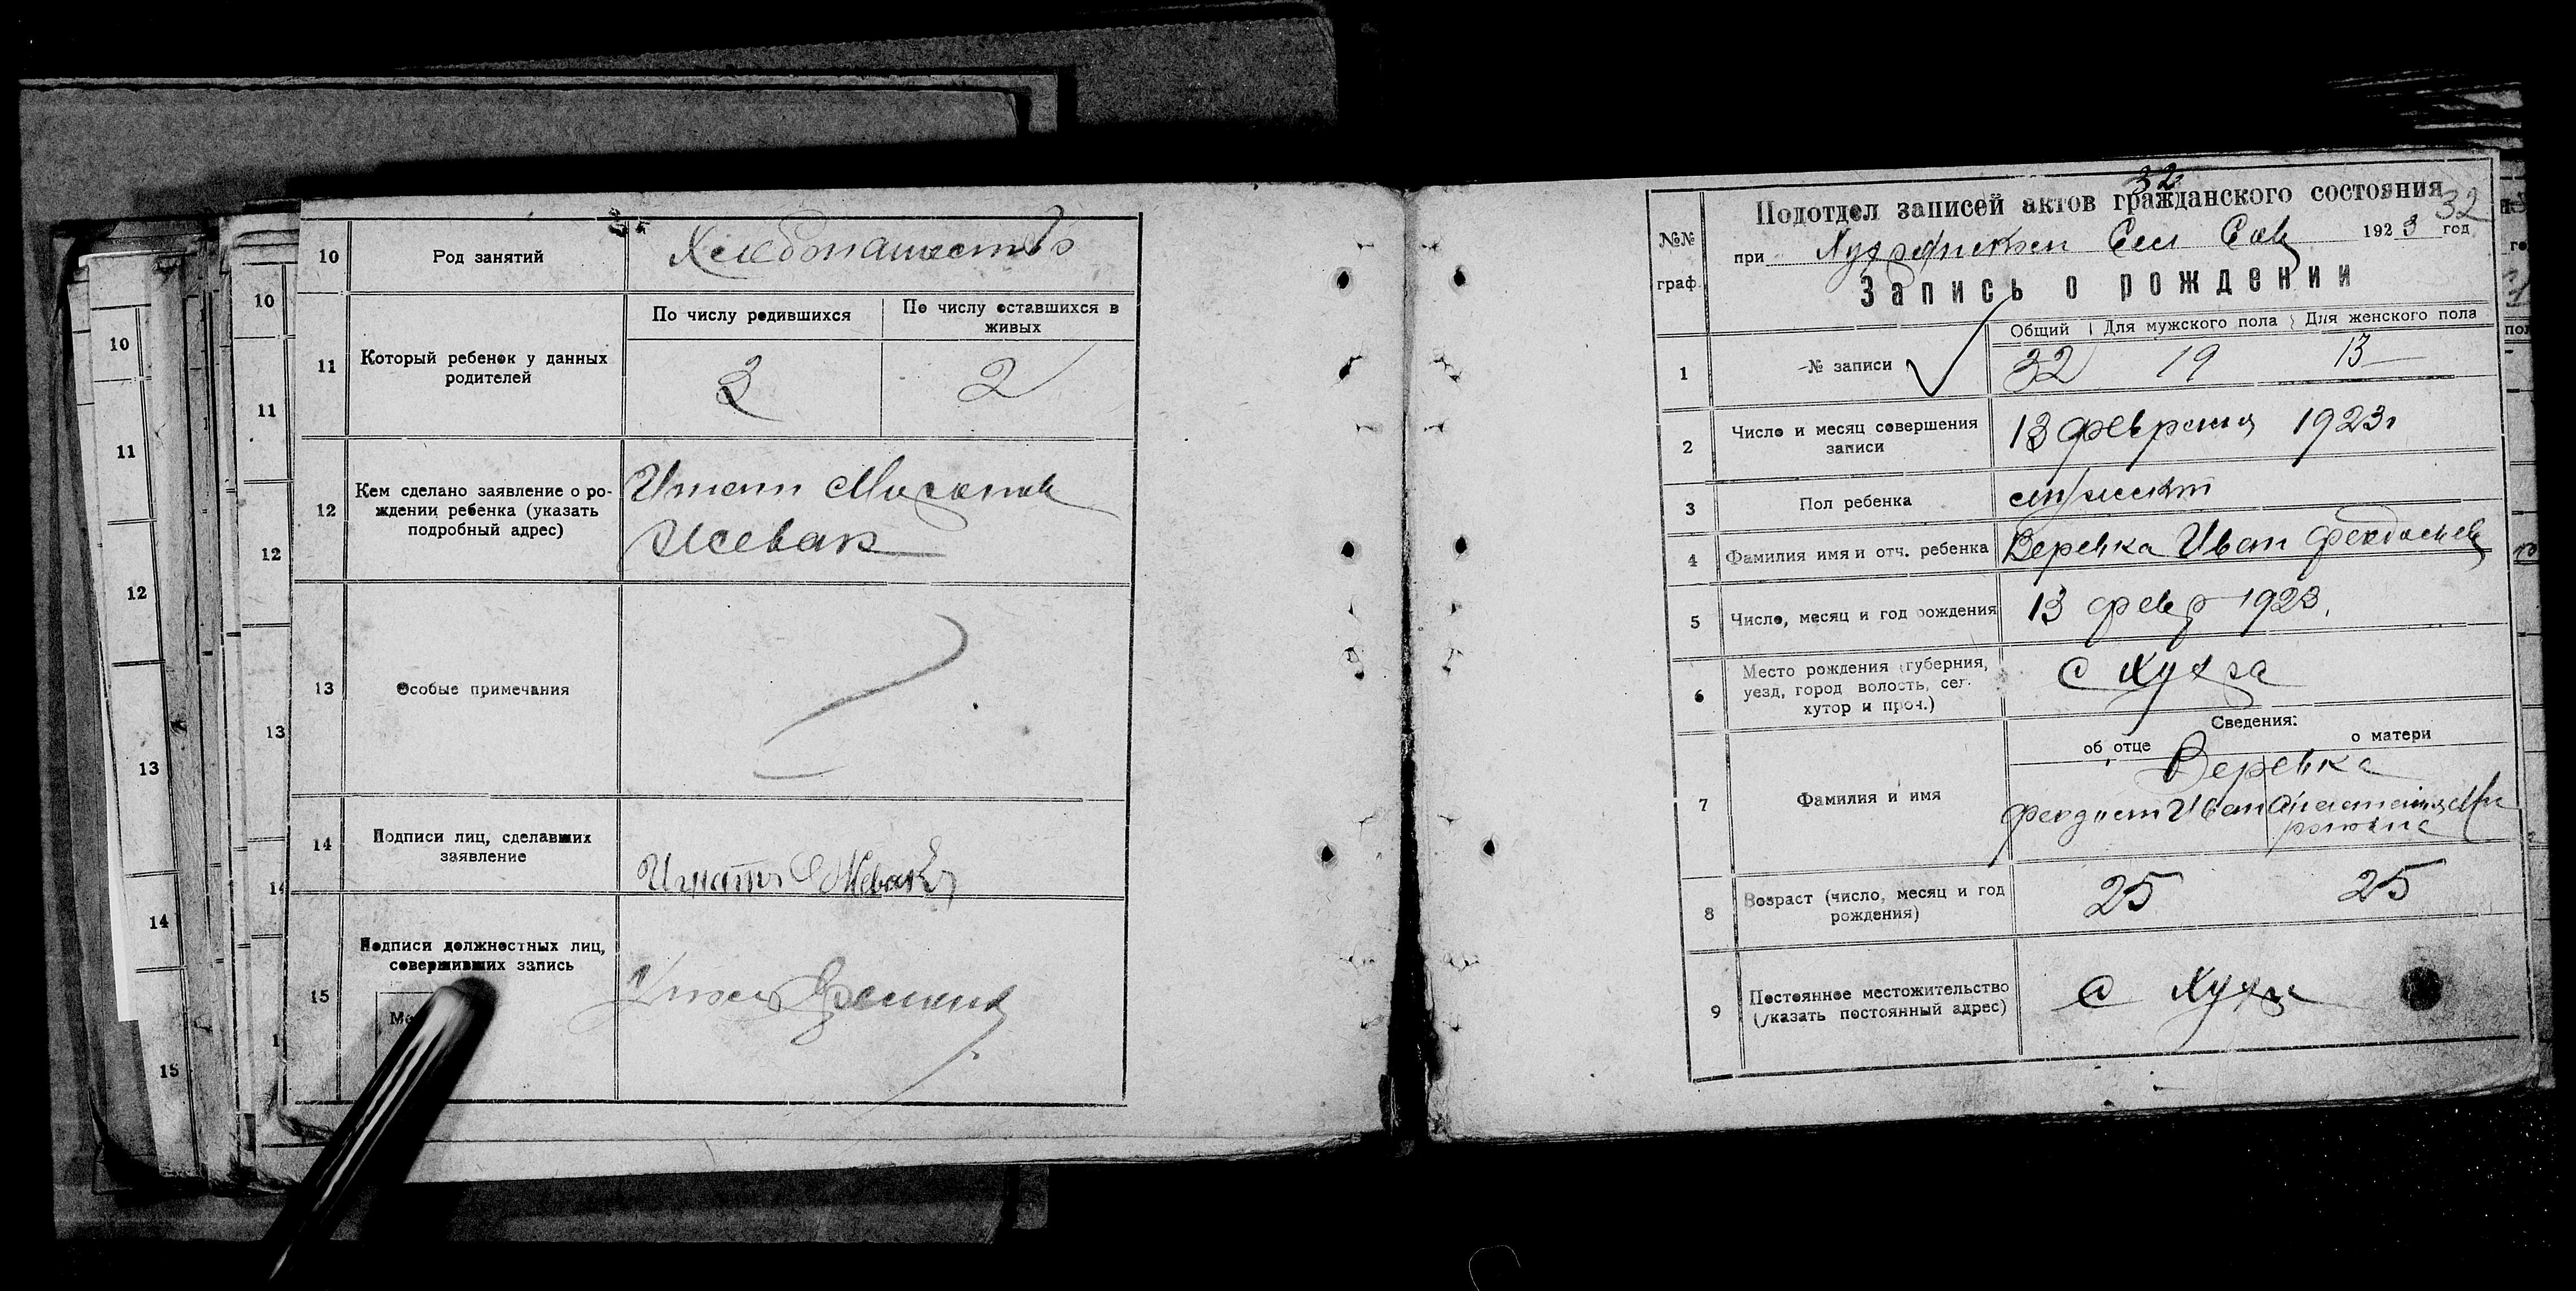 10
Род занятий
Хлебопашество
11
Который ребенок у данных
родителей
По числу родившихся
По числу оставшихся в
живых
3
2
12
Кем сделано заявление о ро-
ждении ребенка (указать
подробный адрес)
Жевак
13
Особые примечания
14
Подписи лиц, сделавших
заявление
Игнат Жевак
15
Подписи должностных лиц,
совершивших запись
10
11
12
13
14
15
10
11
12
13
32
Подотдел записей актов гражданского состояния
32
№№
граф.
при
Сел Сов
1923 год
Запись о рождении
Общий
Для мужского пола
Для женского пола
1
№ записи
32
19
13
2
Число и месяц совершения
записи
13 февраля 1923 г
3
Пол ребенка
4
Фамилия имя и отч. ребенка
Веревка Иван Феодосьев
5
Число, месяц и год рождения
13 февр 1923.
6
Место рождения (губерния,
уезд, город волость, сел.
хутор и проч.)
с
Сведения:
об отце
о матери
7
Фамилия и имя
Веревка
Феодосий Иван
Анастасия
8
Возраст (число, месяц и год
рождения)
25
25
9
Постоянное местожительство
(указать постоянный адрес)
с